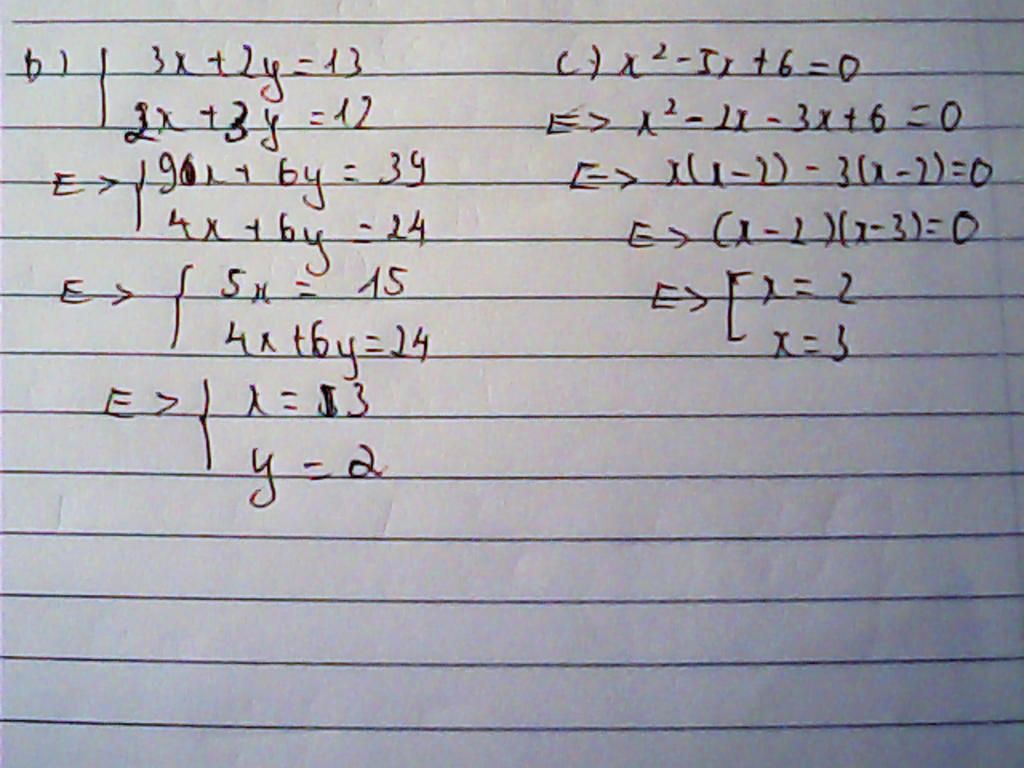 b) { 3x + 2y = 13
2x + 3y = 12
<=> { 9x + 6y = 39
4x + 6y = 24
<=> { 5x = 15
4x + 6y = 24
<=> { x = 3
y = 2
c) x² - 5x + 6 = 0
<=> x² - 2x - 3x + 6 = 0
<=> x(x - 2) - 3(x - 2) = 0
<=> (x - 2)(x - 3) = 0
<=> [ x = 2
x = 3